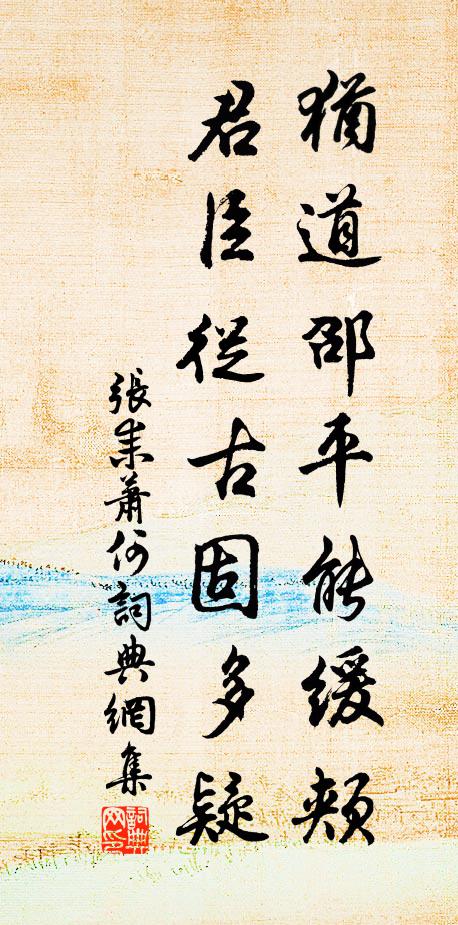 猶道邵平能緩頰
君臣從古固多疑
張耒蕭何詞典網集
詞典网印